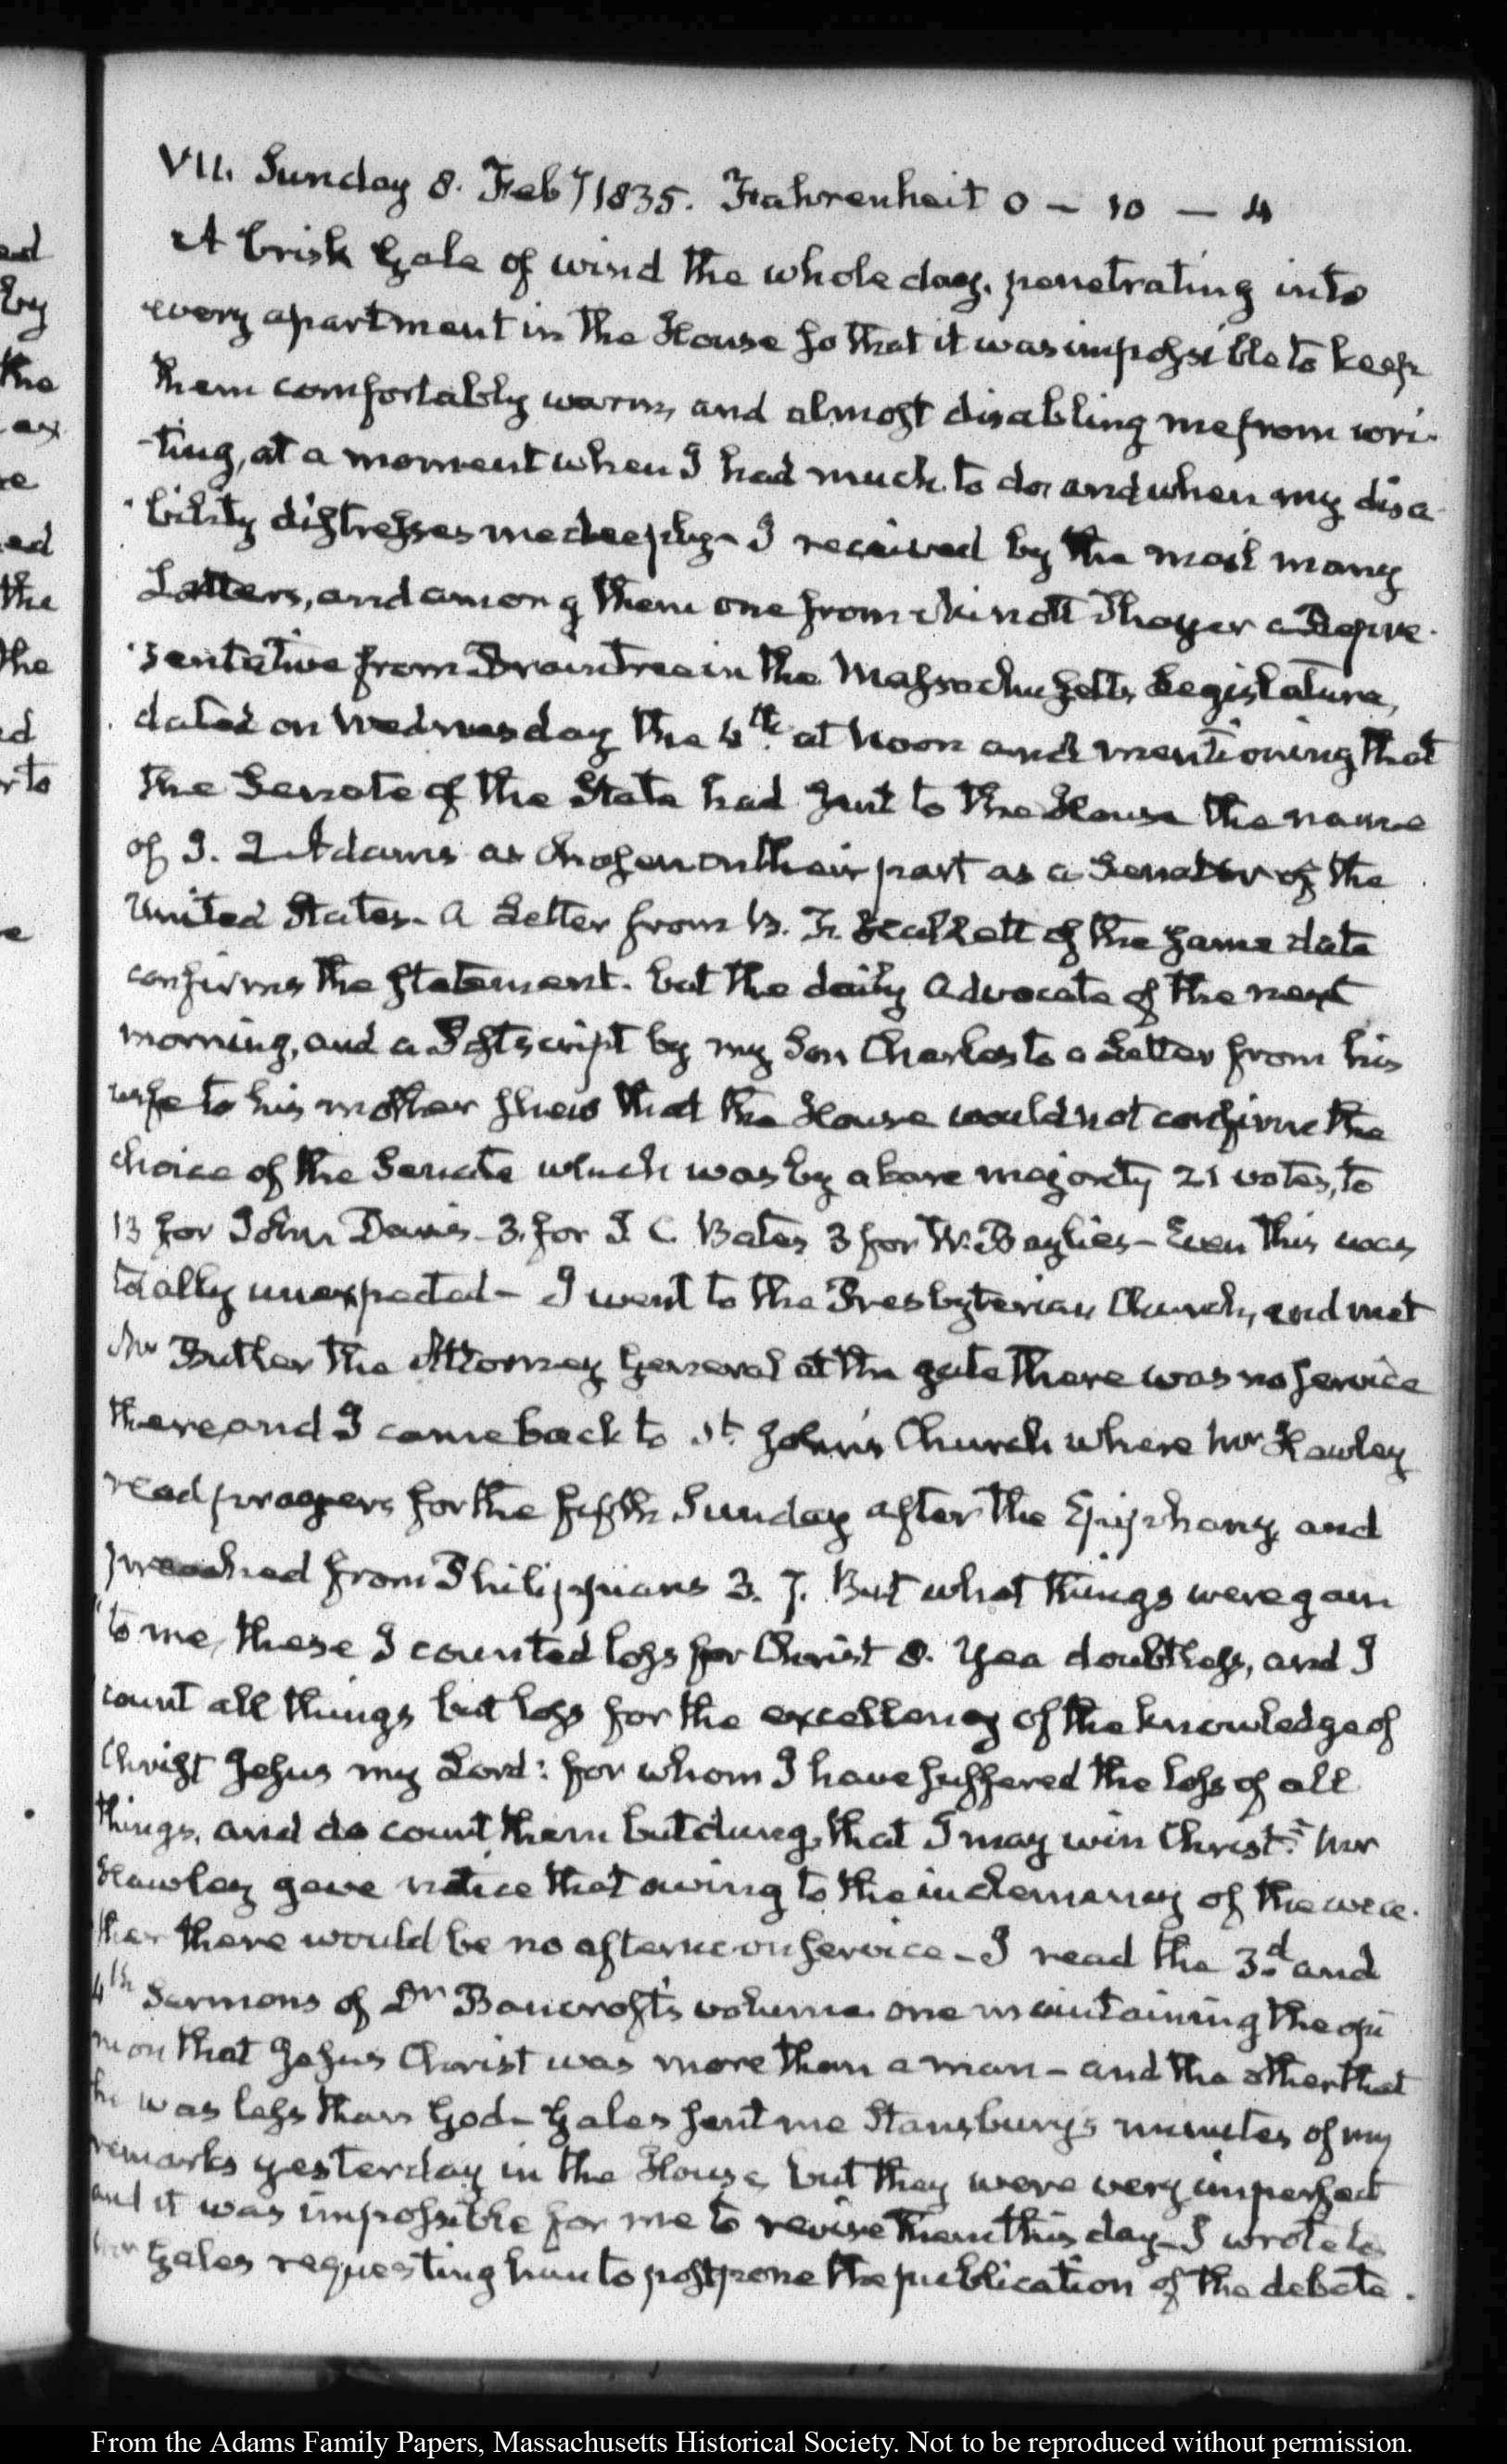 VII. Sunday 8. Feby 1835. Fahrenheit 0 – 10 – 4
A brisk Gale of wind the whole day, penetrating into
every apartment in the House so that it was impossible to keep
them comfortably warm, and almost disabling me from wri-
-ting, at a moment when I had much to do, and when my disa-
-bility distresses me deeply – I received by the mail many
Letters, and among them one from Minott Thayer a Repre-
-sentative from Braintree in the Massachusetts Legislature,
dated on Wednesday the 4th. at Noon and mentioning that
the Senate of the State had sent to the House the name
of J. Q Adams as chosen on their part as a Senator of the
United States. A Letter from B. F. Hallett of the same date
confirms the statement. but the daily Advocate of the next
morning, and a Postscript by my Son Charles to a Letter from his
wife to his mother shew that the House would not confirm the
choice of the Senate which was by a bare majority 21 votes, to
13 for John Davis – 3. for I C. Bates 3 for W. Baylies – Even this was
totally unexpected – I went to the Presbyterian Church, and met
Mr Butler the Attorney General at the gate there was no service
there, and I came back to St. John's Church where Mr Hawley
read prayers for the fifth Sunday after the Epiphany, and
preached from Philippians 3. 7. But what things were gain
"to me, these I counted loss for Christ 8. Yea doubtless, and I
count all things but loss for the excellency of the knowledge of
Christ Jesus my Lord: for whom I have suffered the loss of all
things, and do count them but dung, that I may win Christ." Mr
Hawley gave notice that owing to the inclemency of the wea-
ther there would be no afternoon service – I read the 3.d and
4th Sermons of Dr Bancroft's volume. one maintaining the opi
nion that Jesus Christ was more than a man – and the other that
he was less than God – Gales sent me Stansbury's minutes of my
remarks yesterday in the House, but they were very imperfect
and it was impossible for me to revise them this day – I wrote to
Mr Gales requesting him to postpone the publication of the debate.
From the Adams Family Papers, Massachusetts Historical Society. Not to be reproduced without permission.